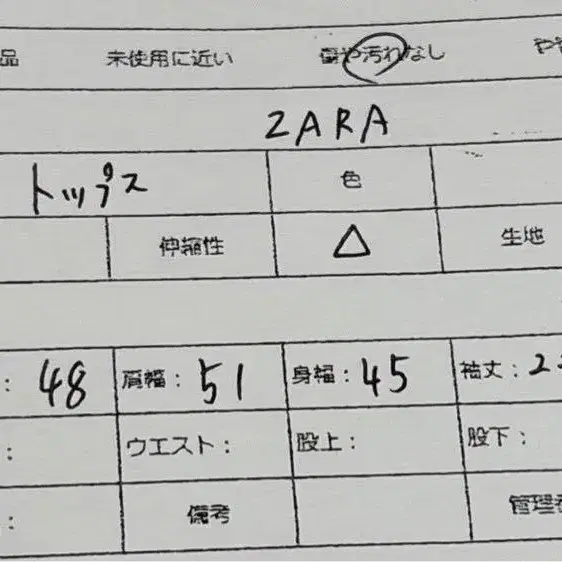 品 未使用に近い 傷や汚れなし
ZARA
トップス 色
伸縮性 △ 生地
: 48 肩幅: 51 身幅: 45 袖丈: 2
: ウエスト: 股上: 股下:
: 備考 管理